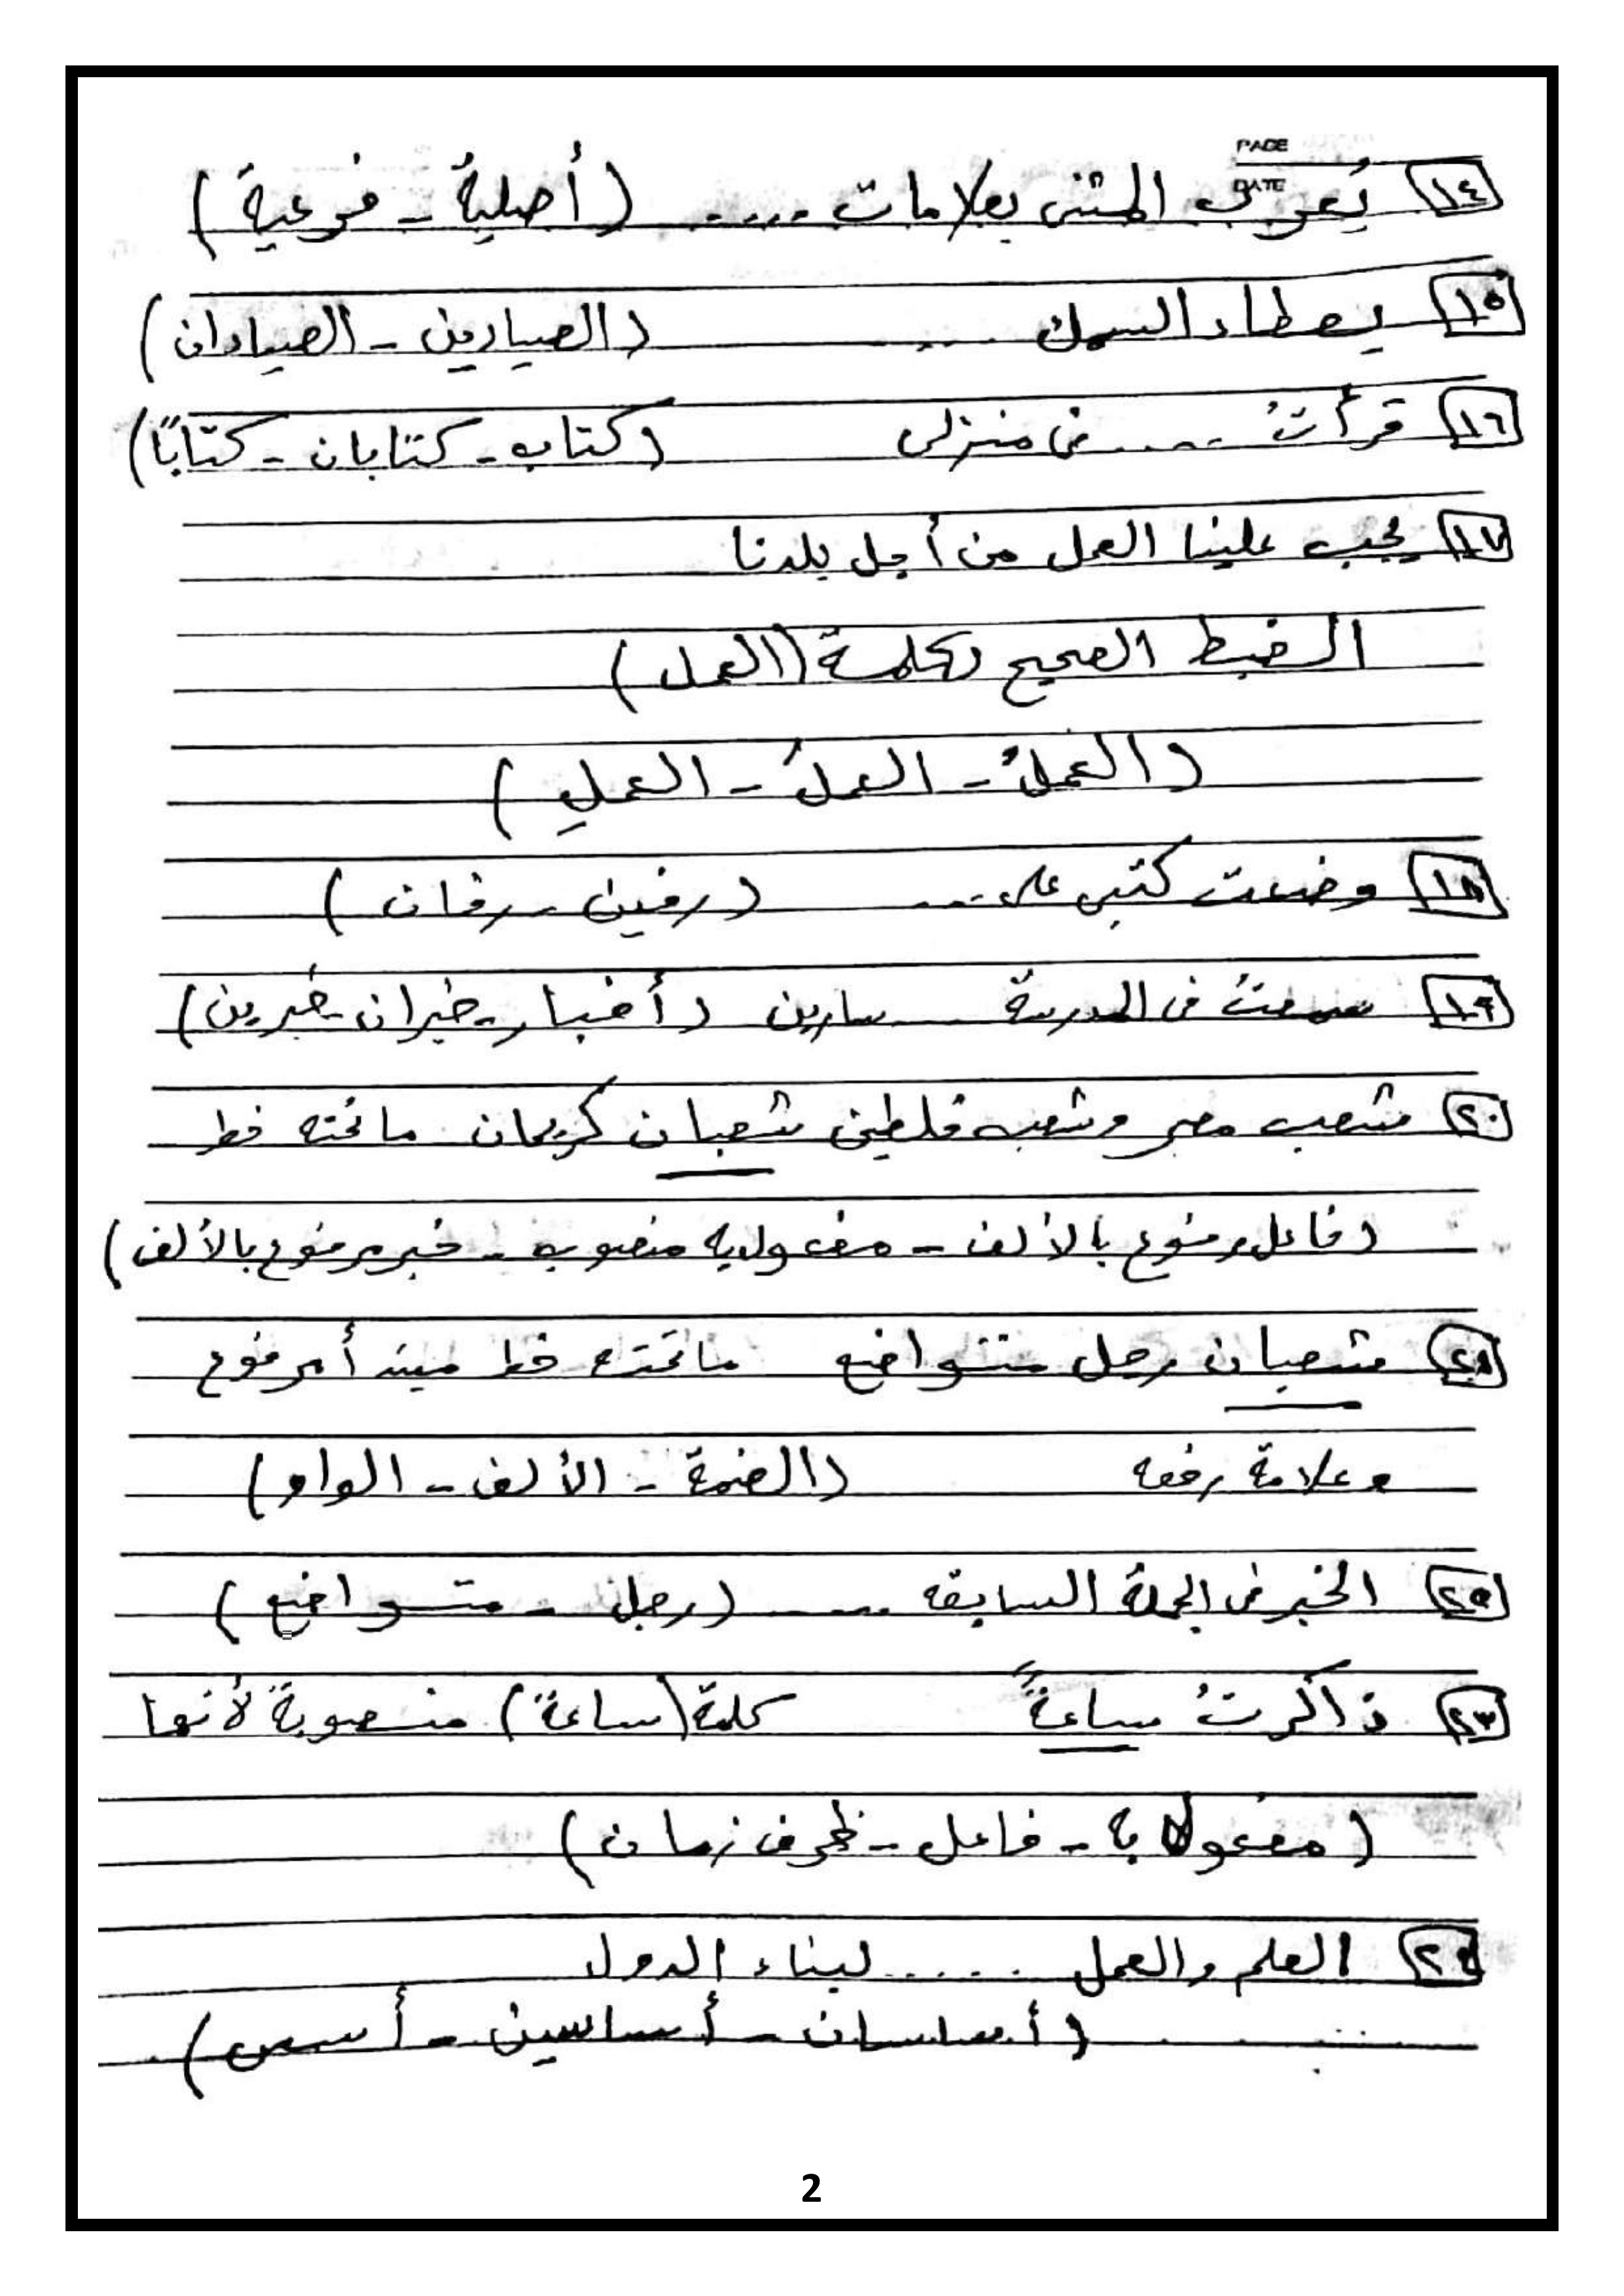 PAGE
DATE
١٤ يُعرب المثنى بعلامات .... (أصلية - فرعية)
١٥ يصطاد السمك .... (الصيادين - الصيادان)
١٦ قرأتُ .... في منزلى (كتاب - كتابان - كتابًا)
١٧ يجب علينا العمل من أجل بلدنا
الضبط الصحيح لكلمة (العمل)
(العملُ - العملَ - العملِ)
١٨ وضعت كتبى على .... (رفين - رفان)
١٩ سمعتُ فى المدرسة .... سارين (أخبار - خبران - خبرين)
٢٠ شعب مصر وشعب فلطين شعبان كريمان ما تحته خط
(فاعل مرفوع بالألف - مفعول به منصوب - خبر مرفوع بالألف)
٢١ شعبان رجل متواضع ما تحته خط مبتدأ مرفوع
وعلامة رفعه (الضمة - الألف - الواو)
٢٥ الخبر فى الجملة السابقه .... (رجل - متواضع)
٢٣ ذاكرتُ ساعةً كلمة (ساعة) منصوبة لأنها
(مفعولا به - فاعل - ظرف زمان)
٢٤ العلم والعمل ..... لبناء الدول
(أساسان - أساسين - أسس)
2